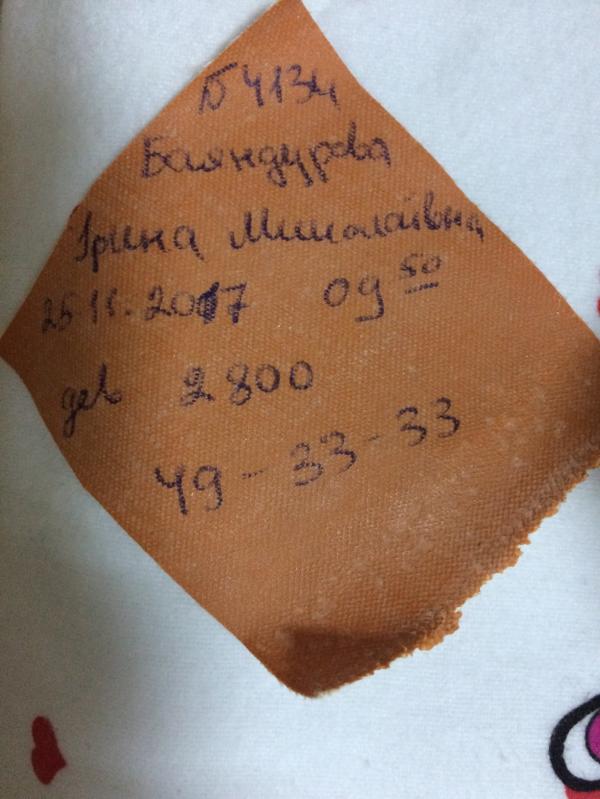 Б 4134
Баяндурова
Ірина Миколаївна
25 11. 2017 09 50
дев 2800
49-33-33